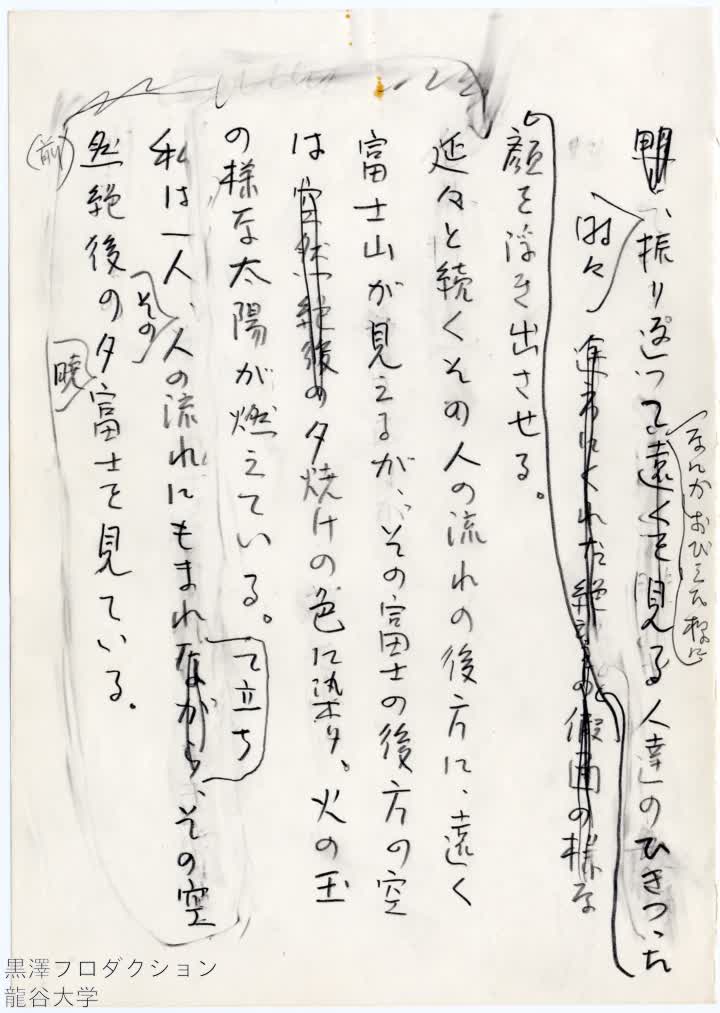 振り返って遠くを見る人達のひきつった
なんかおびえた様に
時々
進
顔を浮き出させる。
延々と続くその人の流れの後方に、遠く
富士山が見えるが、その富士の後方の空
は空然絶後の夕焼けの色に染り、火の玉
の様な太陽が燃えている。
て立ち
私は一人、人の流れにもまれながら、その空
その
前
然絶後の夕富士を見ている。
暁
黒澤プロダクション
龍谷大学